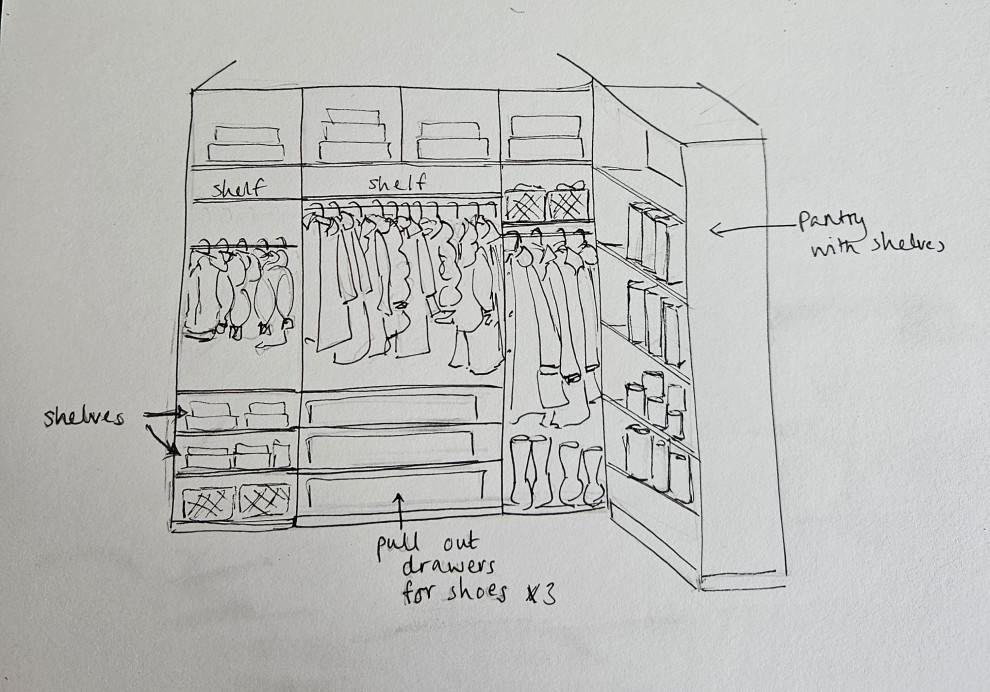 shelf
shelf
pantry
with shelves
shelves
pull out
drawers
for shoes x3